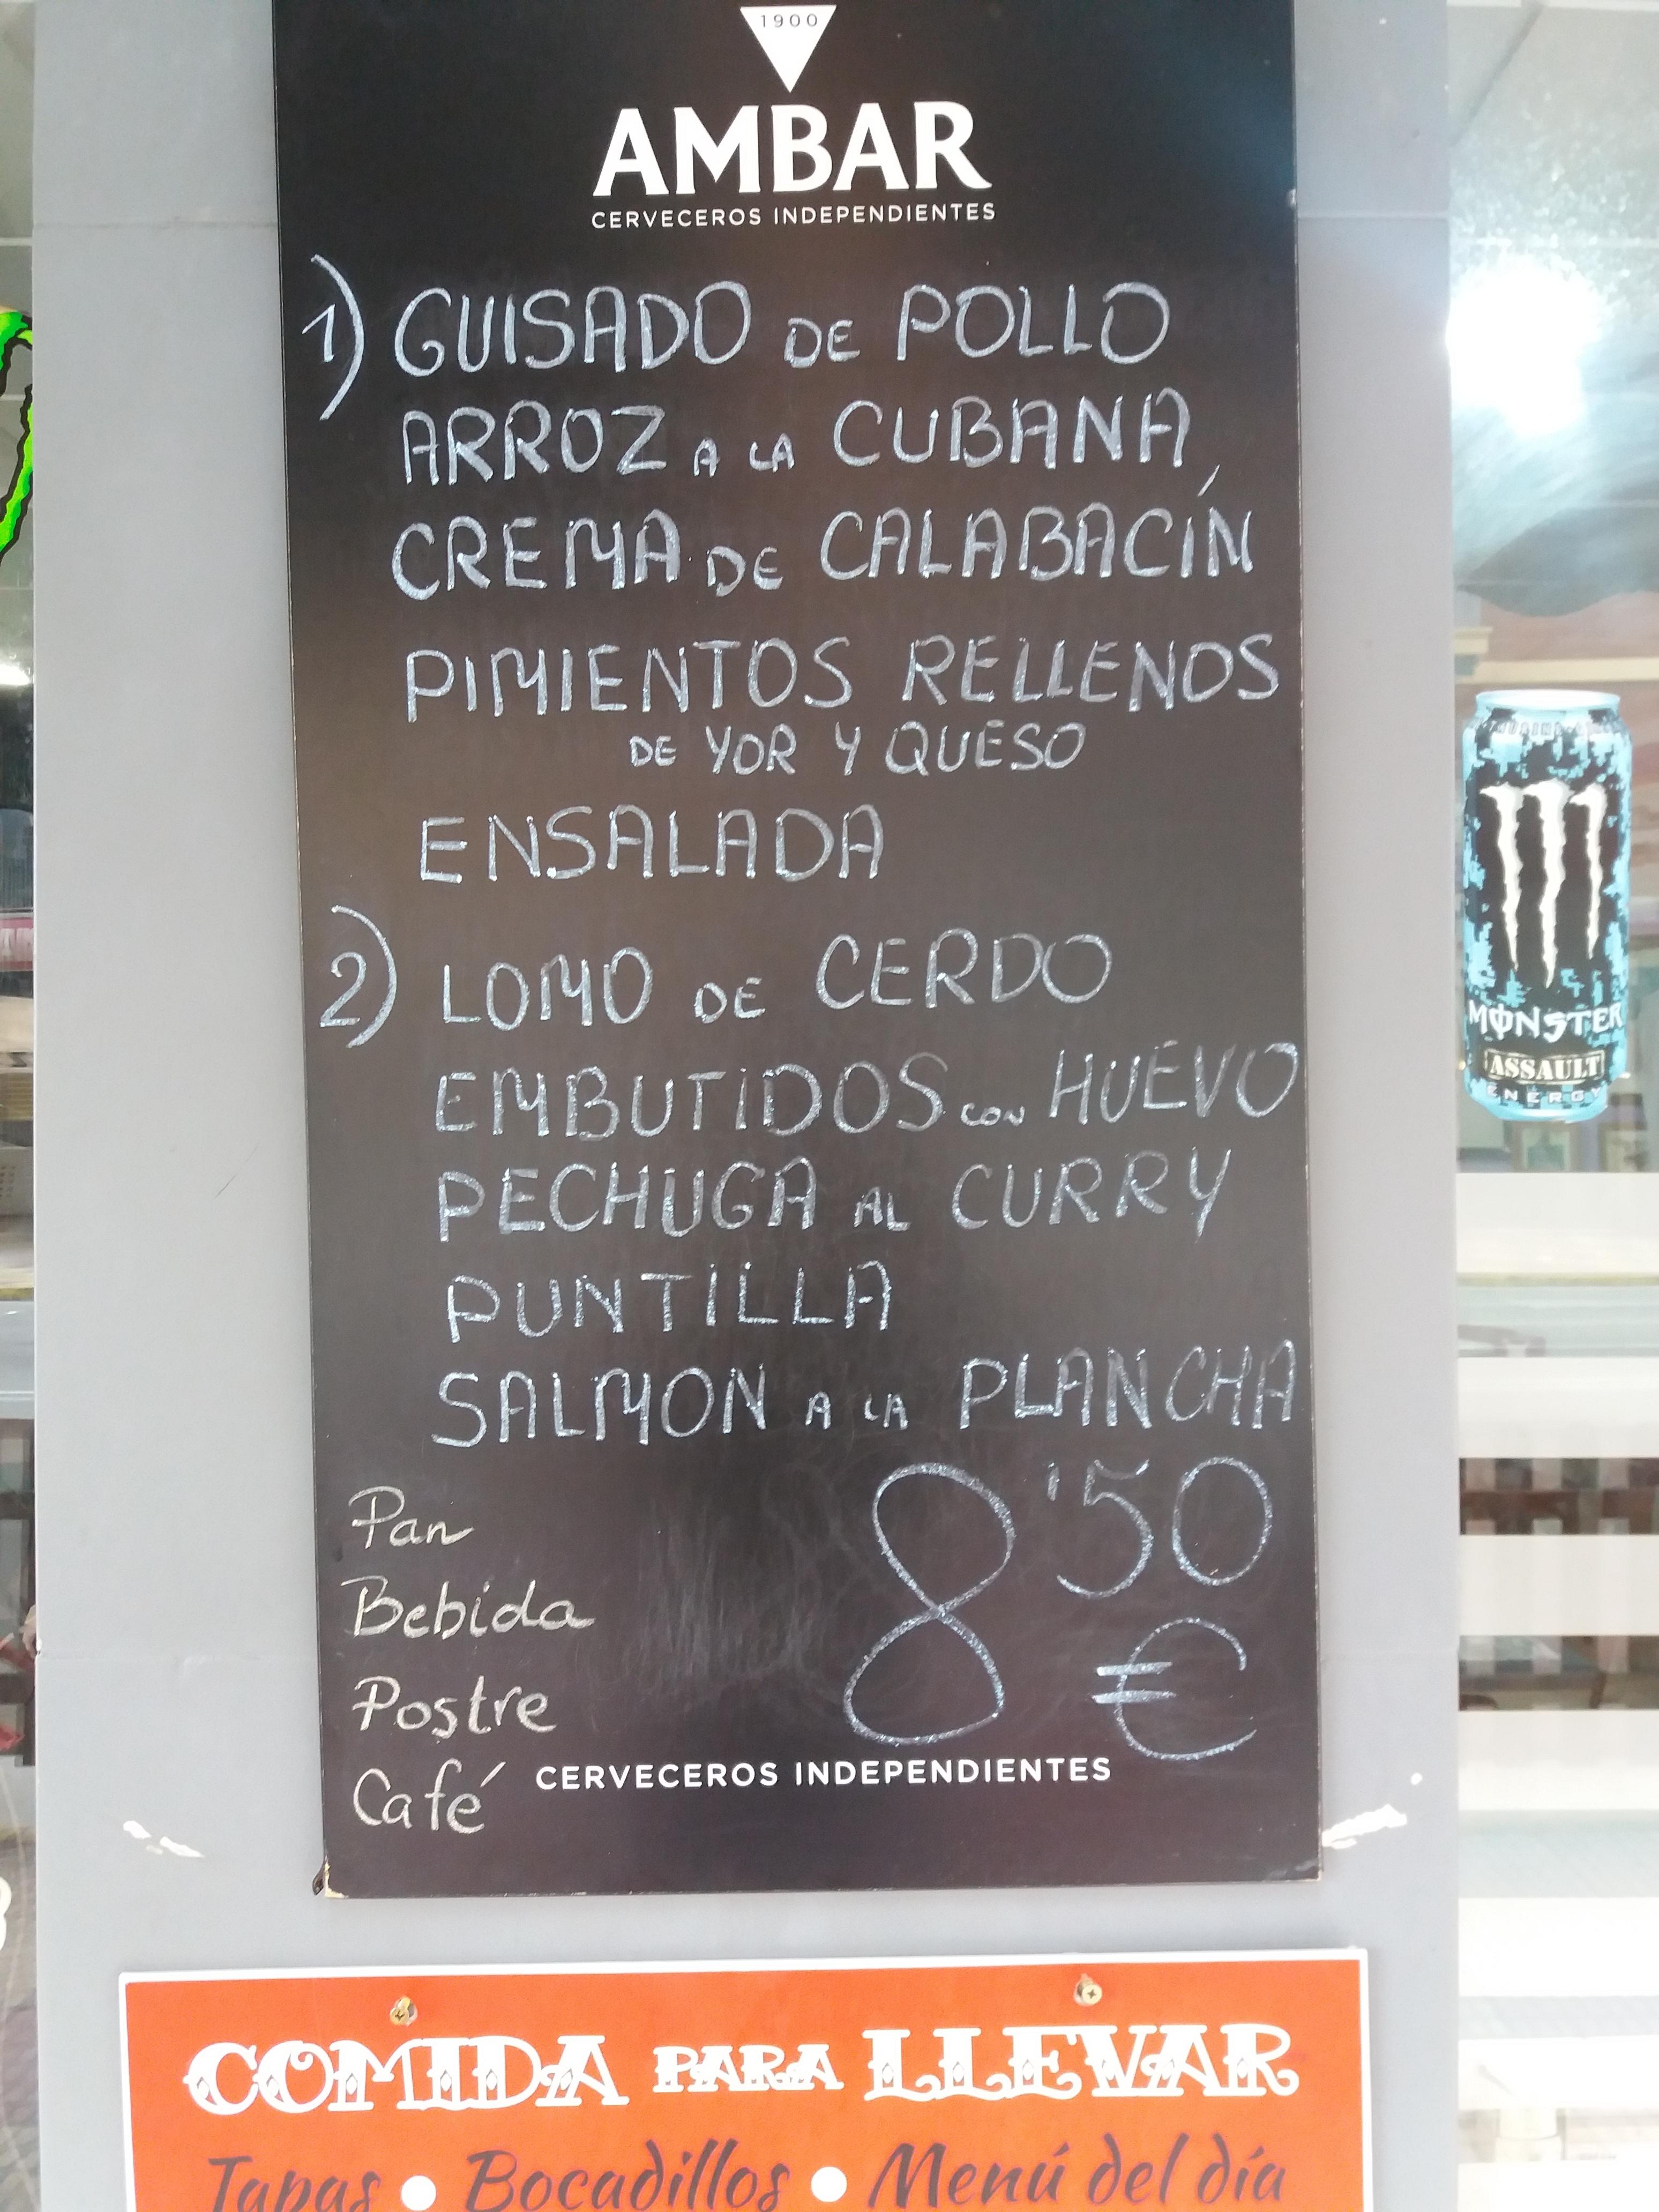 1900
AMBAR
CERVECEROS INDEPENDIENTES
1) GUISADO DE POLLO
ARROZ A LA CUBANA
CREMA DE CALABACÍN
PIMIENTOS RELLENOS
DE YOR Y QUESO
ENSALADA
2) LOMO DE CERDO
EMBUTIDOS CON HUEVO
PECHUGA AL CURRY
PUNTILLA
SALMON A LA PLANCHA
8'50
€
Pan
Bebida
Postre
Café
CERVECEROS INDEPENDIENTES
MONSTER
ASSAULT
ENERGY
COMIDA PARA LLEVAR
Tapas • Bocadillos • Menú del día